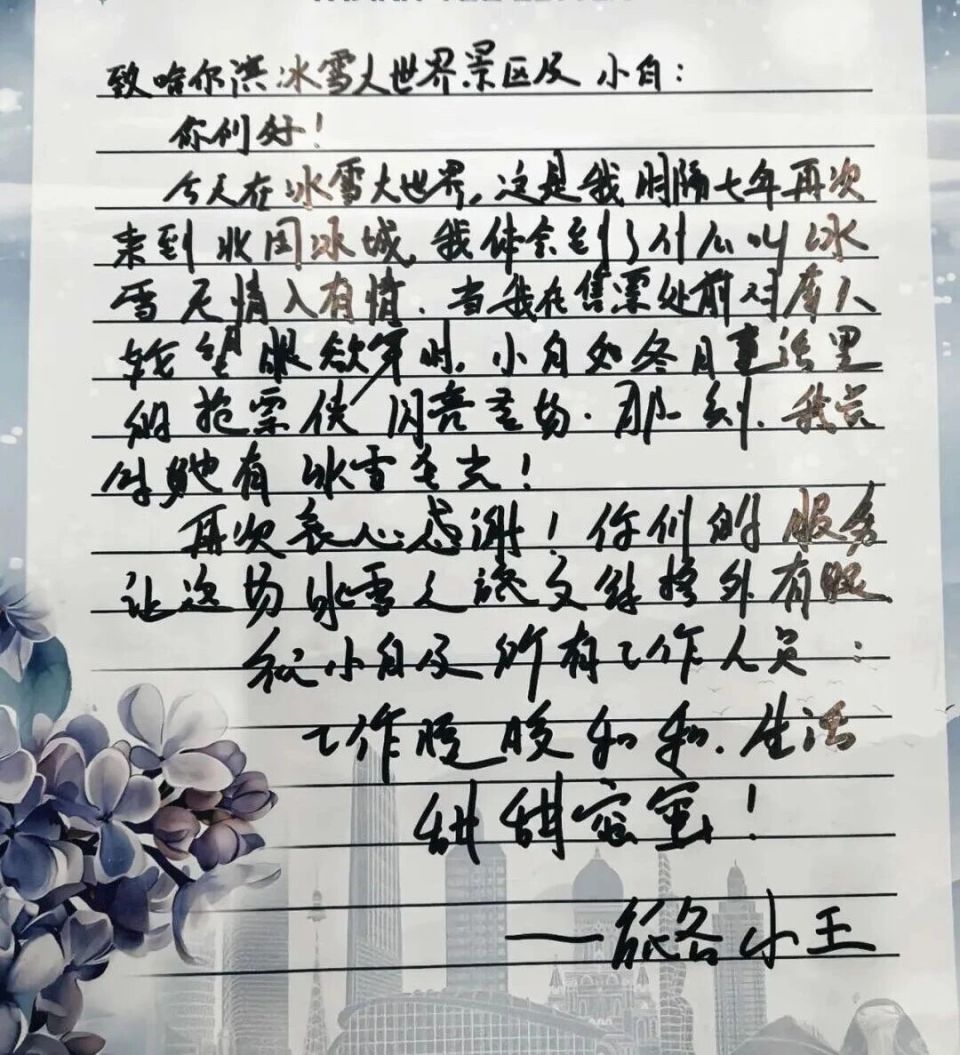 致哈尔滨冰雪大世界景区及小白：
你们好！
今天在冰雪大世界，这是我时隔七年再次
来到北国冰城，我体会到了什么叫冰
雪无情人有情．当我在售票处前对着人
望眼欲穿时，小白如冬日童话里
的抢票侠闪亮登场．那一刻，我觉
得她有冰雪圣光！
再次衷心感谢！你们的服务
让这场冰雪之旅文体格外有暖
祝小白及所有工作人员：
工作暖暖和和．生活
甜甜蜜蜜！
——旅客小王